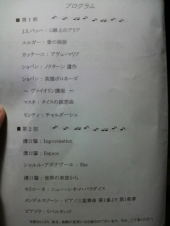 プログラム
■第1部
J.S.バッハ：G線上のアリア
エルガー：愛の挨拶
カッチーニ：アヴェ・マリア
ショパン：ノクターン 遺作
ショパン：英雄ポロネーズ
～ ヴァイオリン講座 ～
マスネ：タイスの瞑想曲
モンティ：チャルダーシュ
■第2部
溝口肇：Improvisation
溝口肇：Espace
シャルル・アズナブール：She
溝口肇：世界の車窓から
モリコーネ：ニュー・シネマ・パラダイス
メンデルスゾーン：ピアノ三重奏曲 第1番より 第1楽章
ピアソラ：リベルタンゴ